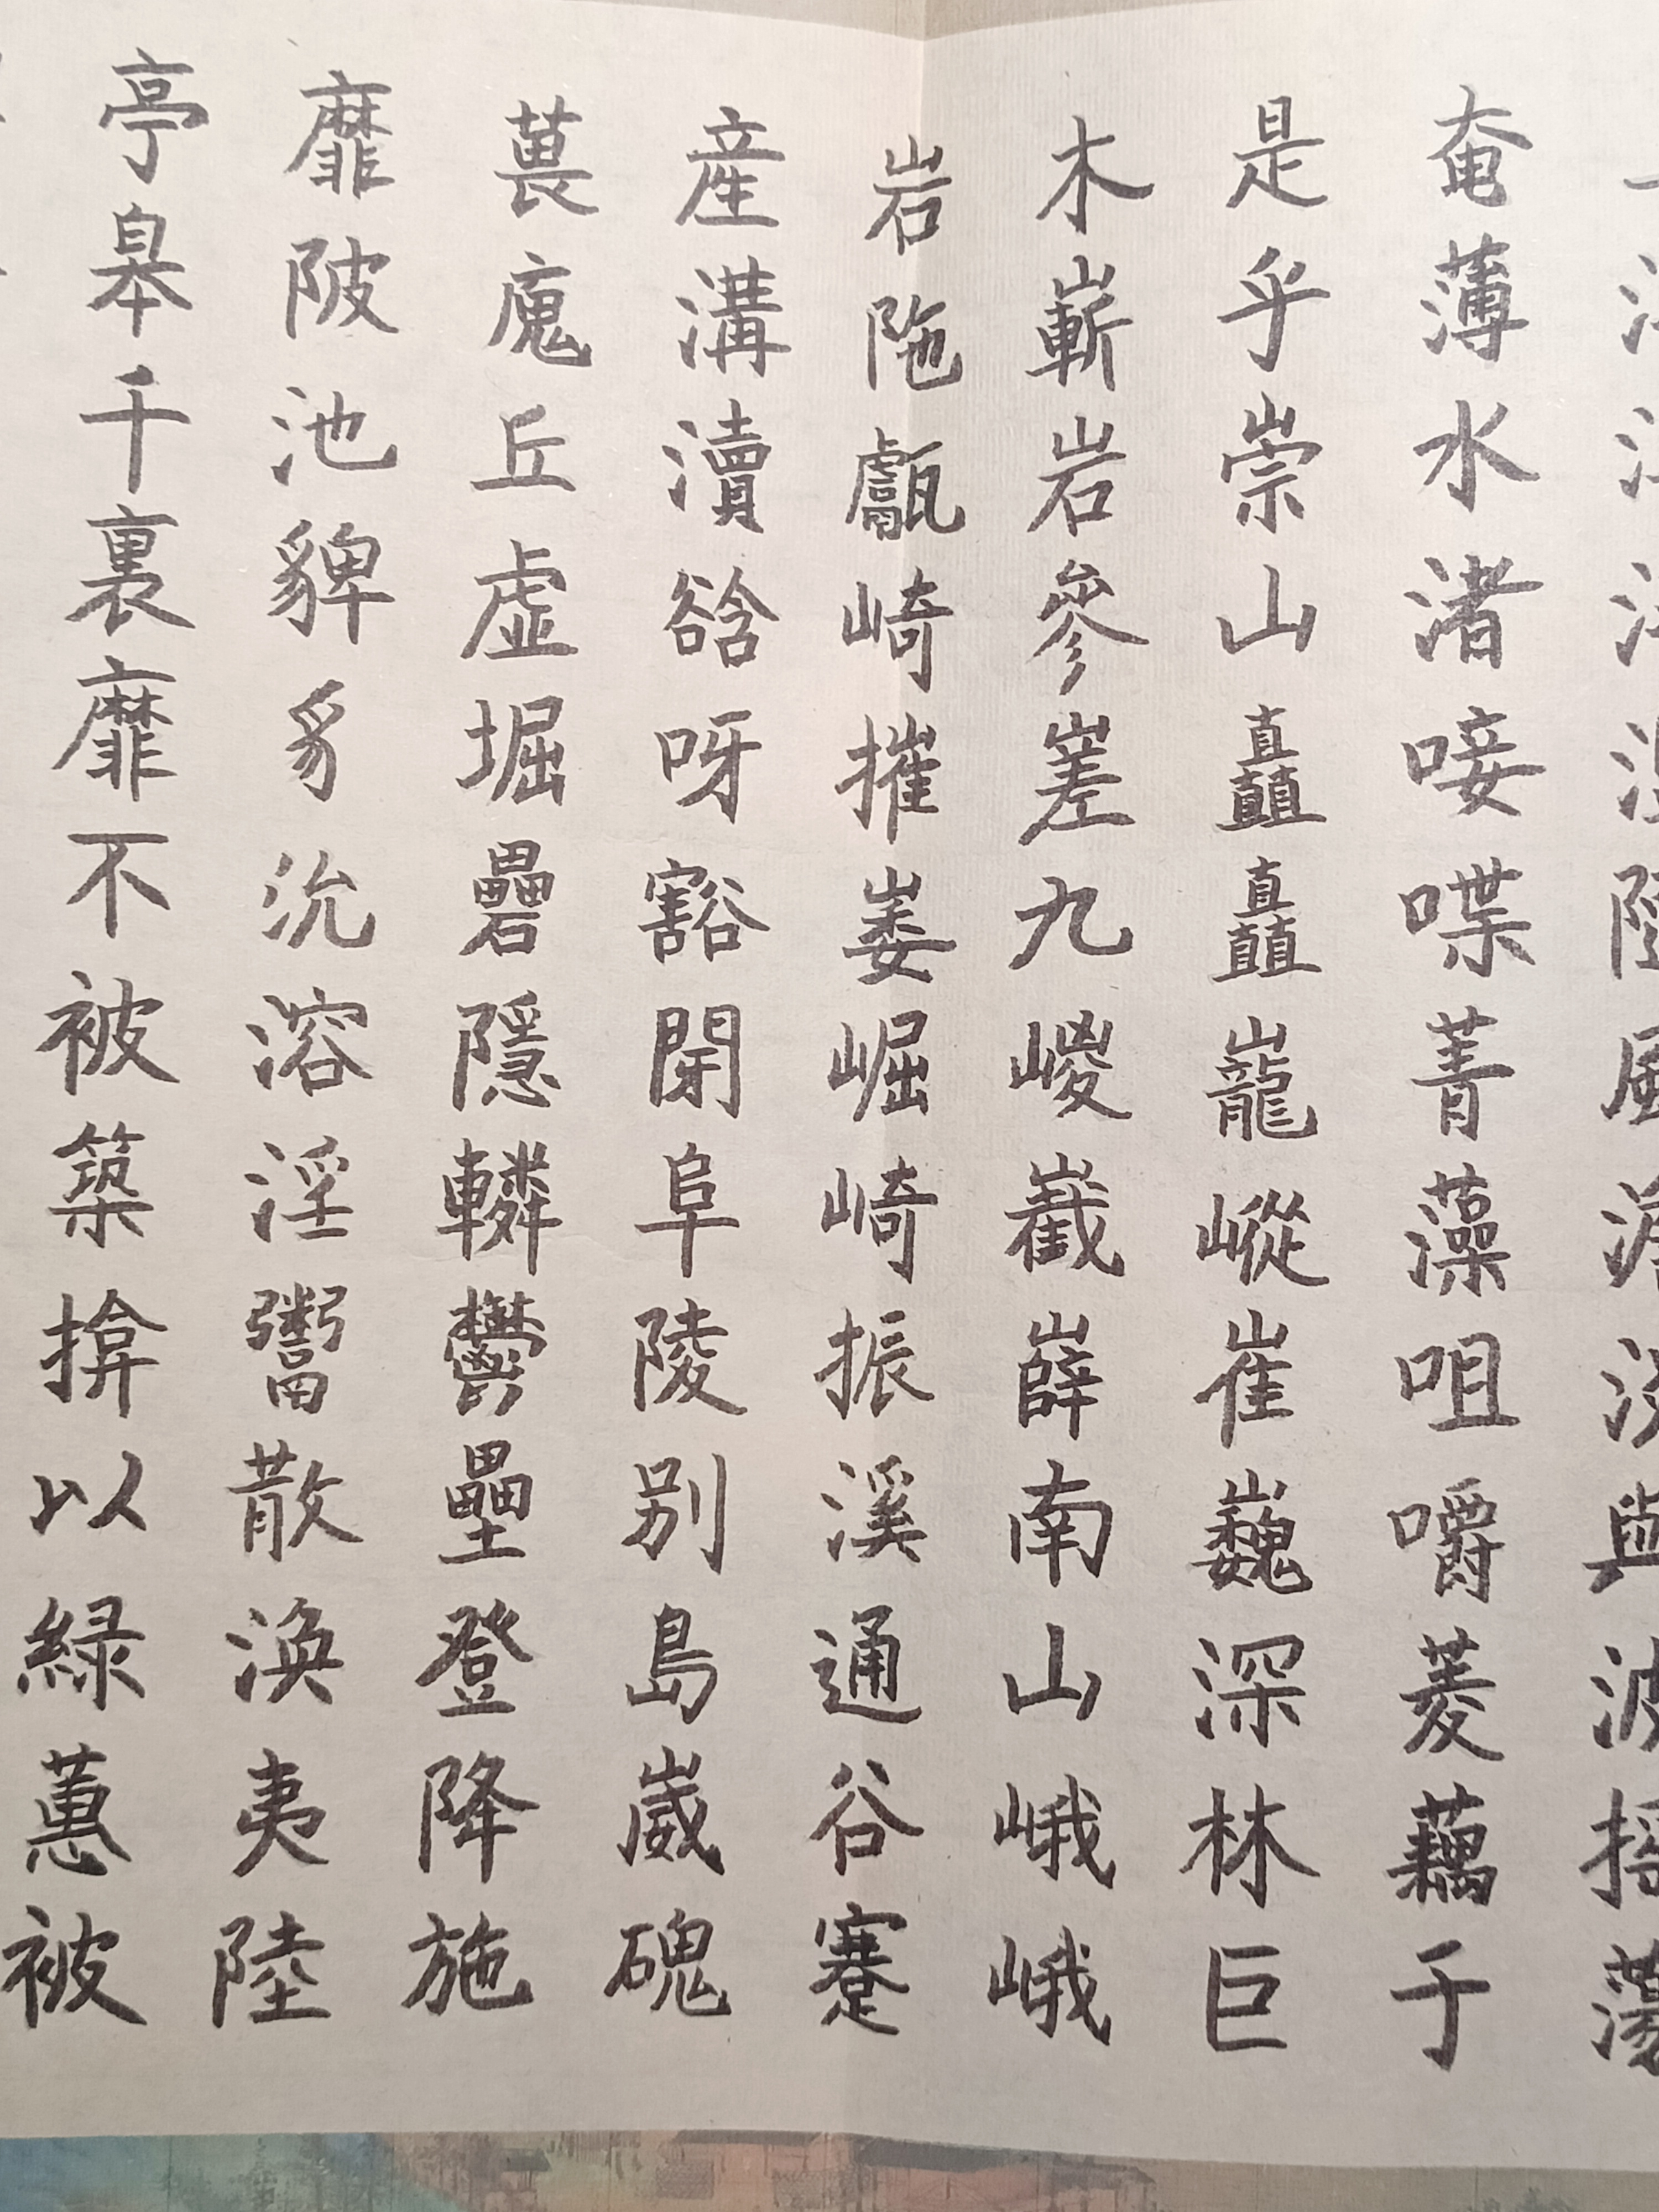 奄薄水渚唼喋菁藻咀嚼菱藕于
是乎崇山矗矗巃嵷崔巍深林巨
木嶄岩參嵳九嵕嶻嶭南山峨峨
岩陁甗崎摧崣崛崎振溪通谷蹇
産溝瀆谽呀豁閕阜陵别島崴磈
葨廆丘虚堀礨隱轔鬱壘登降施
靡陂池貏豸沇溶淫鬻散渙夷陸
亭臯千裏靡不被築揜以緑蕙被